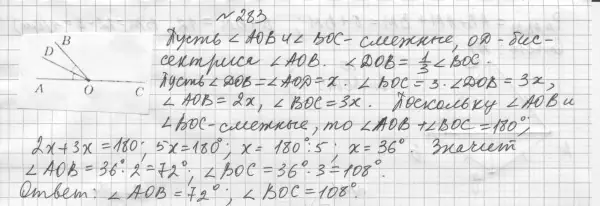 №283
Пусть ∠AOB и ∠BOC - смежные, OD - бис-
сектриса ∠AOB. ∠DOB = 1/3 ∠BOC.
Пусть ∠DOB = ∠AOD = x. ∠BOC = 3·∠DOB = 3x,
∠AOB = 2x, ∠BOC = 3x. Поскольку ∠AOB и
∠BOC - смежные, то ∠AOB + ∠BOC = 180°,
2x + 3x = 180°; 5x = 180°; x = 180°:5; x = 36°. Значит
∠AOB = 36°·2 = 72°; ∠BOC = 36°·3 = 108°.
Ответ: ∠AOB = 72°; ∠BOC = 108°.
B
D
A
O
C